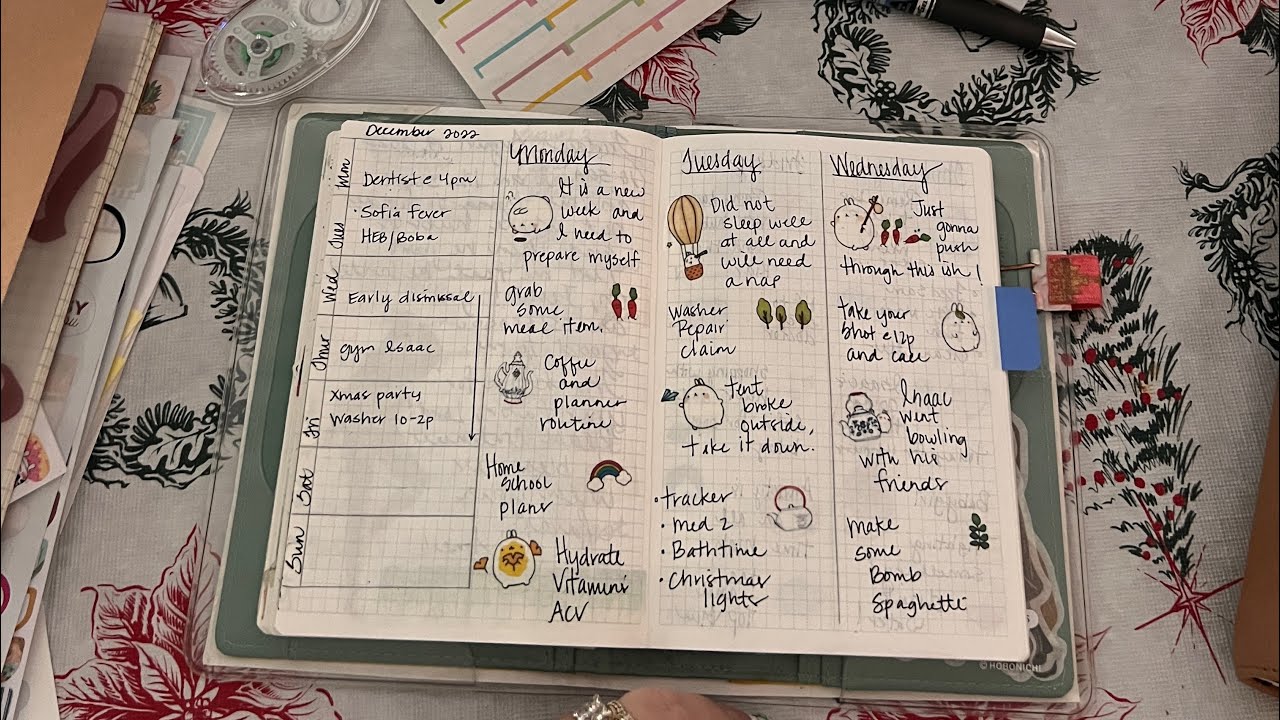 December 2022
Mon
Dentist @ 4pm
Tues
· Sofia fever
HEB/Boba
Wed
Early dismissal
Thur
gym Isaac
Fri
Xmas party
Washer 10-2p
Sat
Sun
Monday
It is a new
week and
I need to
prepare myself
grab
some
meal item.
Coffee
and
planner
routine
Home
School
plans
Hydrate
Vitamins
ACV
Tuesday
Did not
sleep well
at all and
will need
a nap
Washer
Repair
claim
Tent
broke
outside,
take it down.
· tracker
· med 2
· Bathtime
· Christmas
lights
Wednesday
Just
gonna
push
through this ish!
take your
shot @12p
and cake
Isaac
went
bowling
with his
friends
Make
some
Bomb
Spaghetti
© HOBONICHI